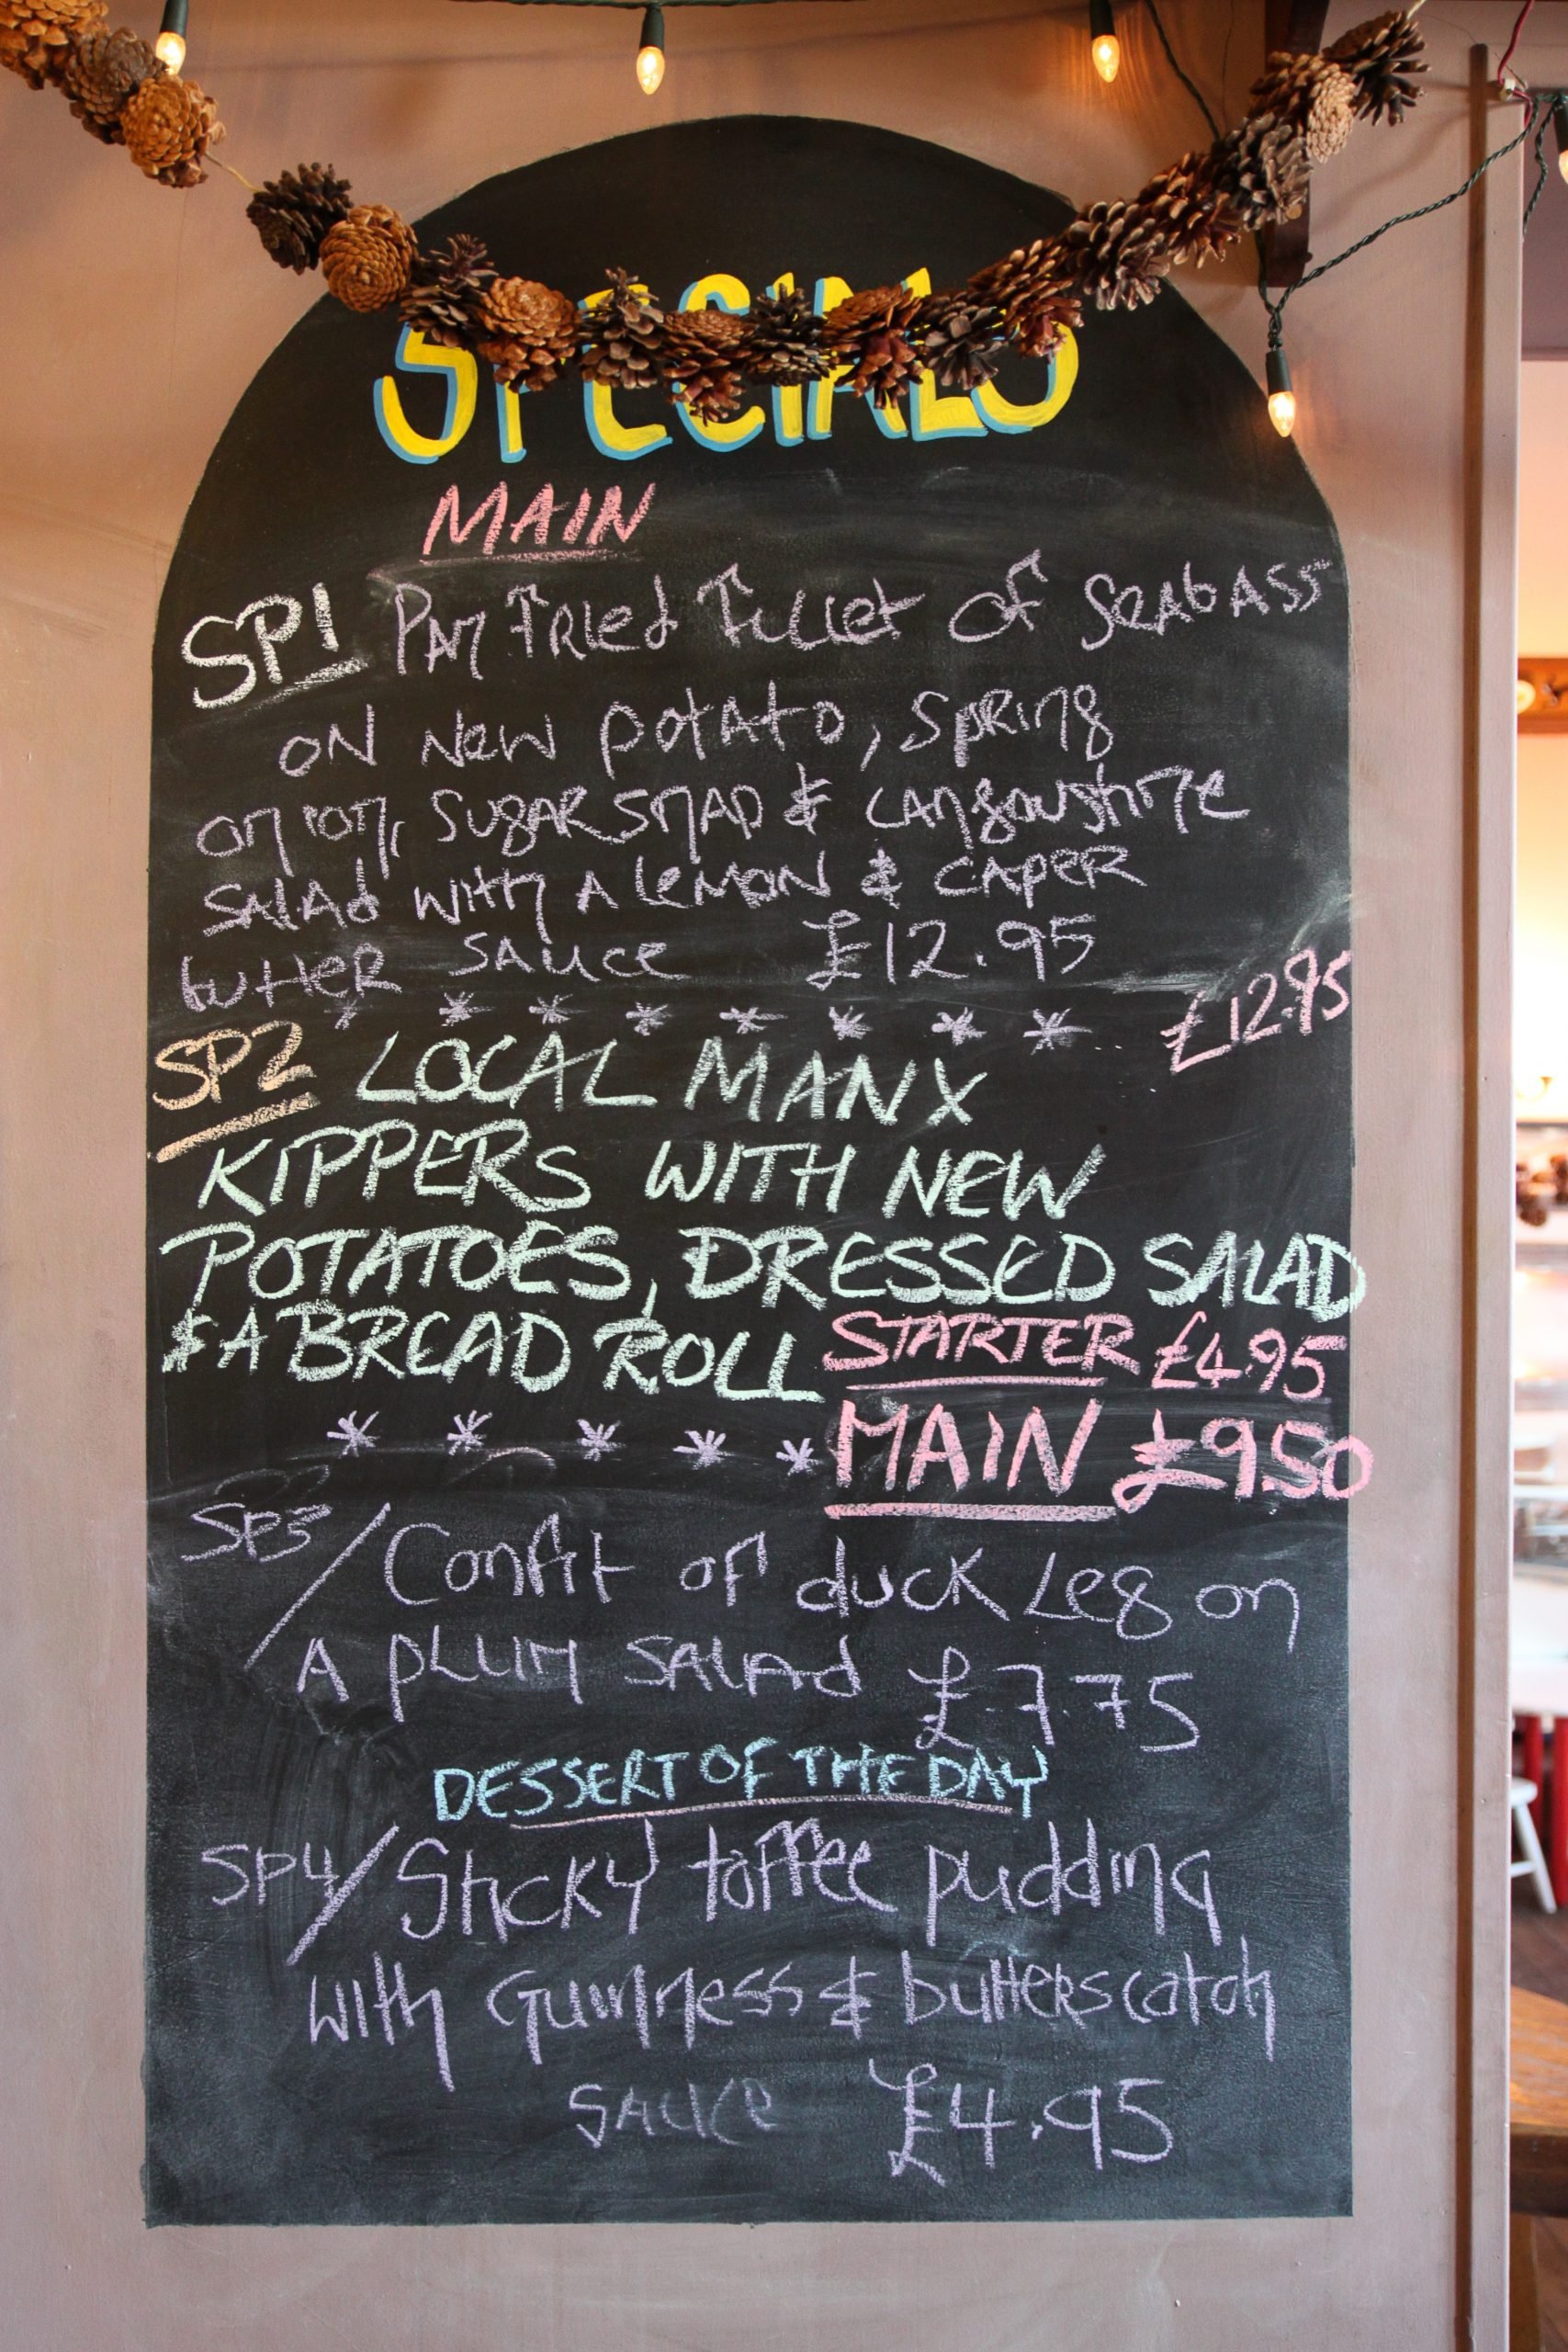 SPECIALS
MAIN
SP1 Pan Fried Fillet of SeabASS
ON New potAto, SpRing
onion, SugAR SnAp & LAngoustine
SALAd with A LeMON & CAPER
butteR SAuce £12.95
* * * * * * * * £12.95
SP2 LOCAL MANX
KIPPERS WITH NEW
POTATOES, DRESSED SALAD
& A BREAD ROLL STARTER £4.95
* * * * * MAIN £9.50
SP3/ Confit of duck Leg on
A pLum SALAd £7.75
DESSERT OF THE DAY
SP4/ Sticky toffee pudding
with Guinness & butterscatch
SAuce £4.95